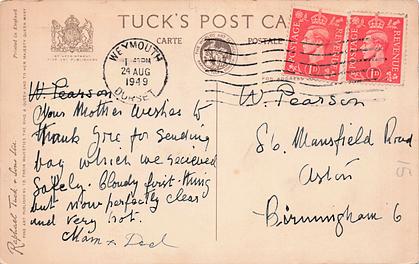 TUCK'S POST CARD
CARTE POSTALE
WEYMOUTH
24 AUG
1949
DORSET
POSTAGE REVENUE
1D
POSTAGE REVENUE
1D
Printed in England
Raphael Tuck & Sons Ltd.
W. Pearson
Your Mother wishes to
thank you for sending
bag which we received
safely. Cloudy first thing
but now perfectly clear
and very hot.
Mam & Dad
W. Pearson
86. Mansfield Road
Aston
Birmingham 6
15